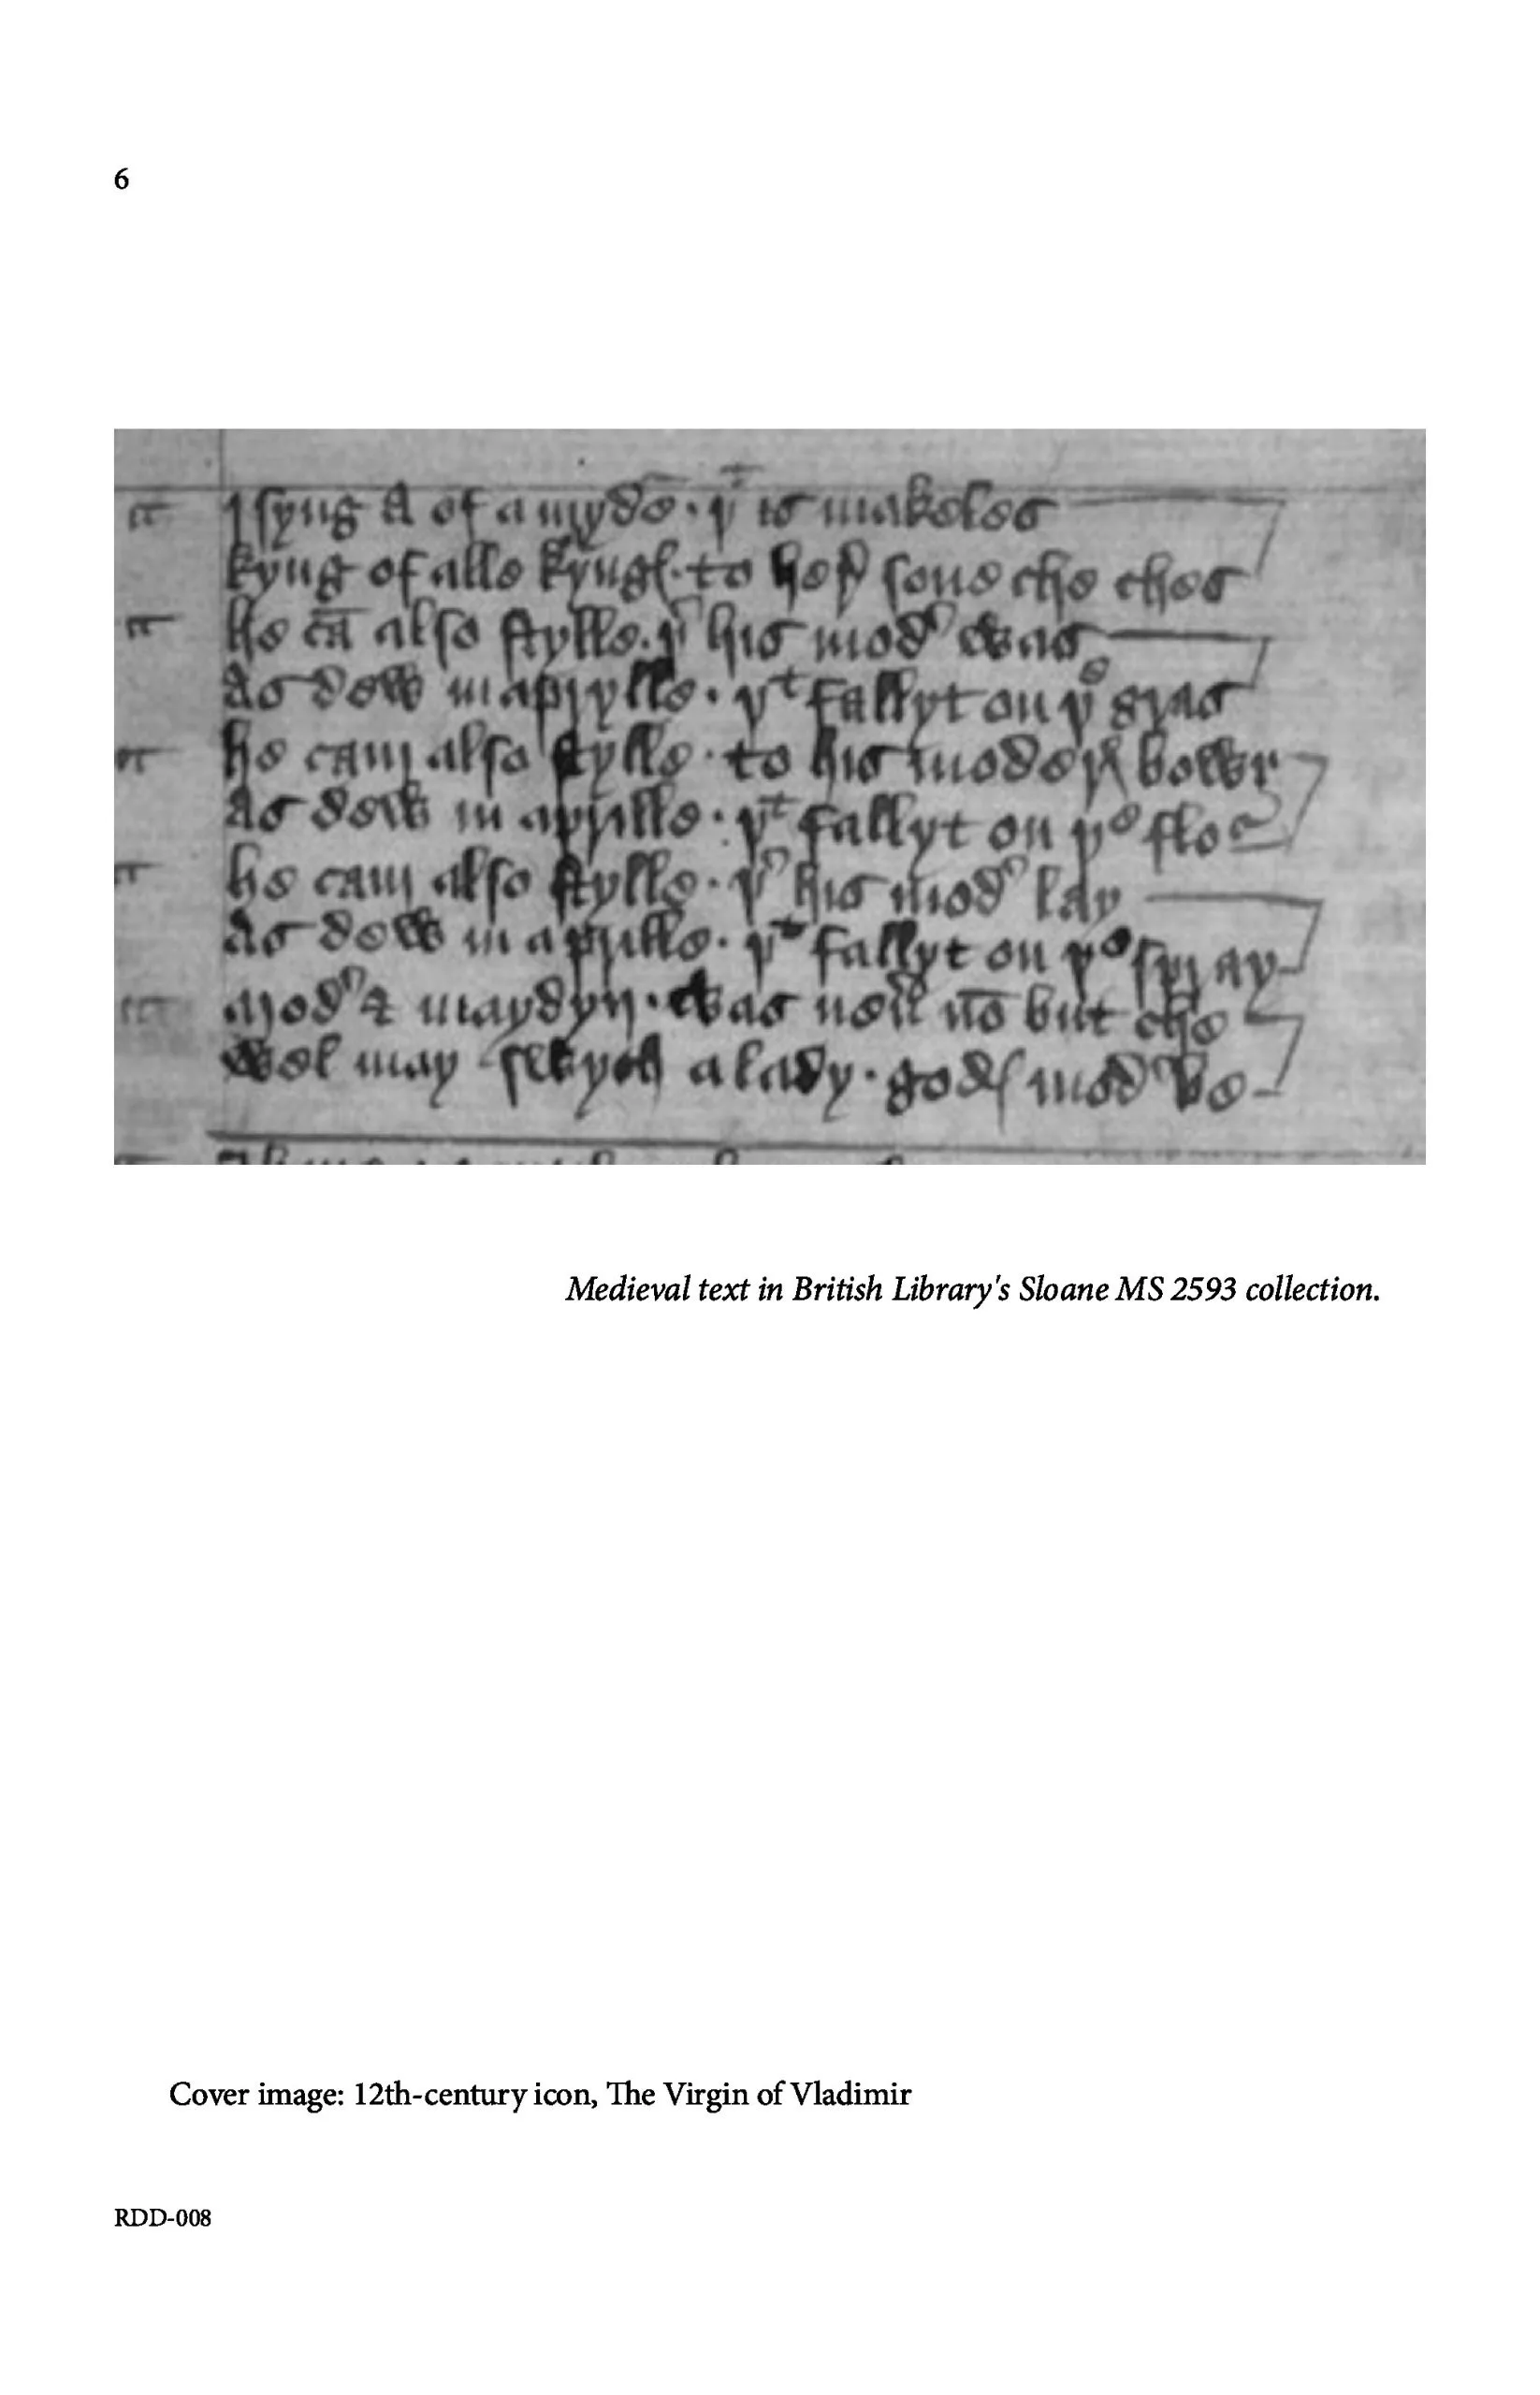 6
I syng A of a mydē · þᵗ is makeles
kyng of alle kyngꝭ · to her sone che ches
he cā also stylle · þʳ his modʳ was
As dew in aprylle · þᵗ fallyt on þᵉ gras
he cam also stylle · to his moderꝭ bowr
As dew in aprille · þᵗ fallyt on þᵉ flor
he cam also stylle · þʳ his modʳ lay
As dew in aprille · þᵗ fallyt on þᵉ spray
modʳ & maydyn · was neuʳ nō but che
Wel may swych a lady · godꝭ modʳ be
Medieval text in British Library's Sloane MS 2593 collection.
Cover image: 12th-century icon, The Virgin of Vladimir
RDD-008